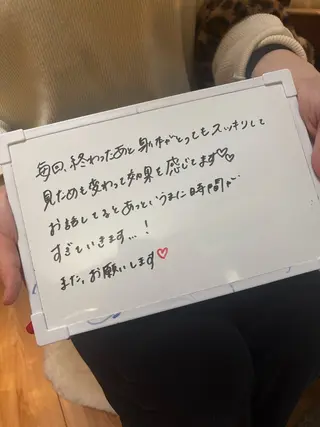 毎回、終わったあと身体がとってもスッキリして
見ためも変わって効果を感じてます♡♡
お話ししてるとあっというまに時間が
すぎていきます…！
また、お願いします♡